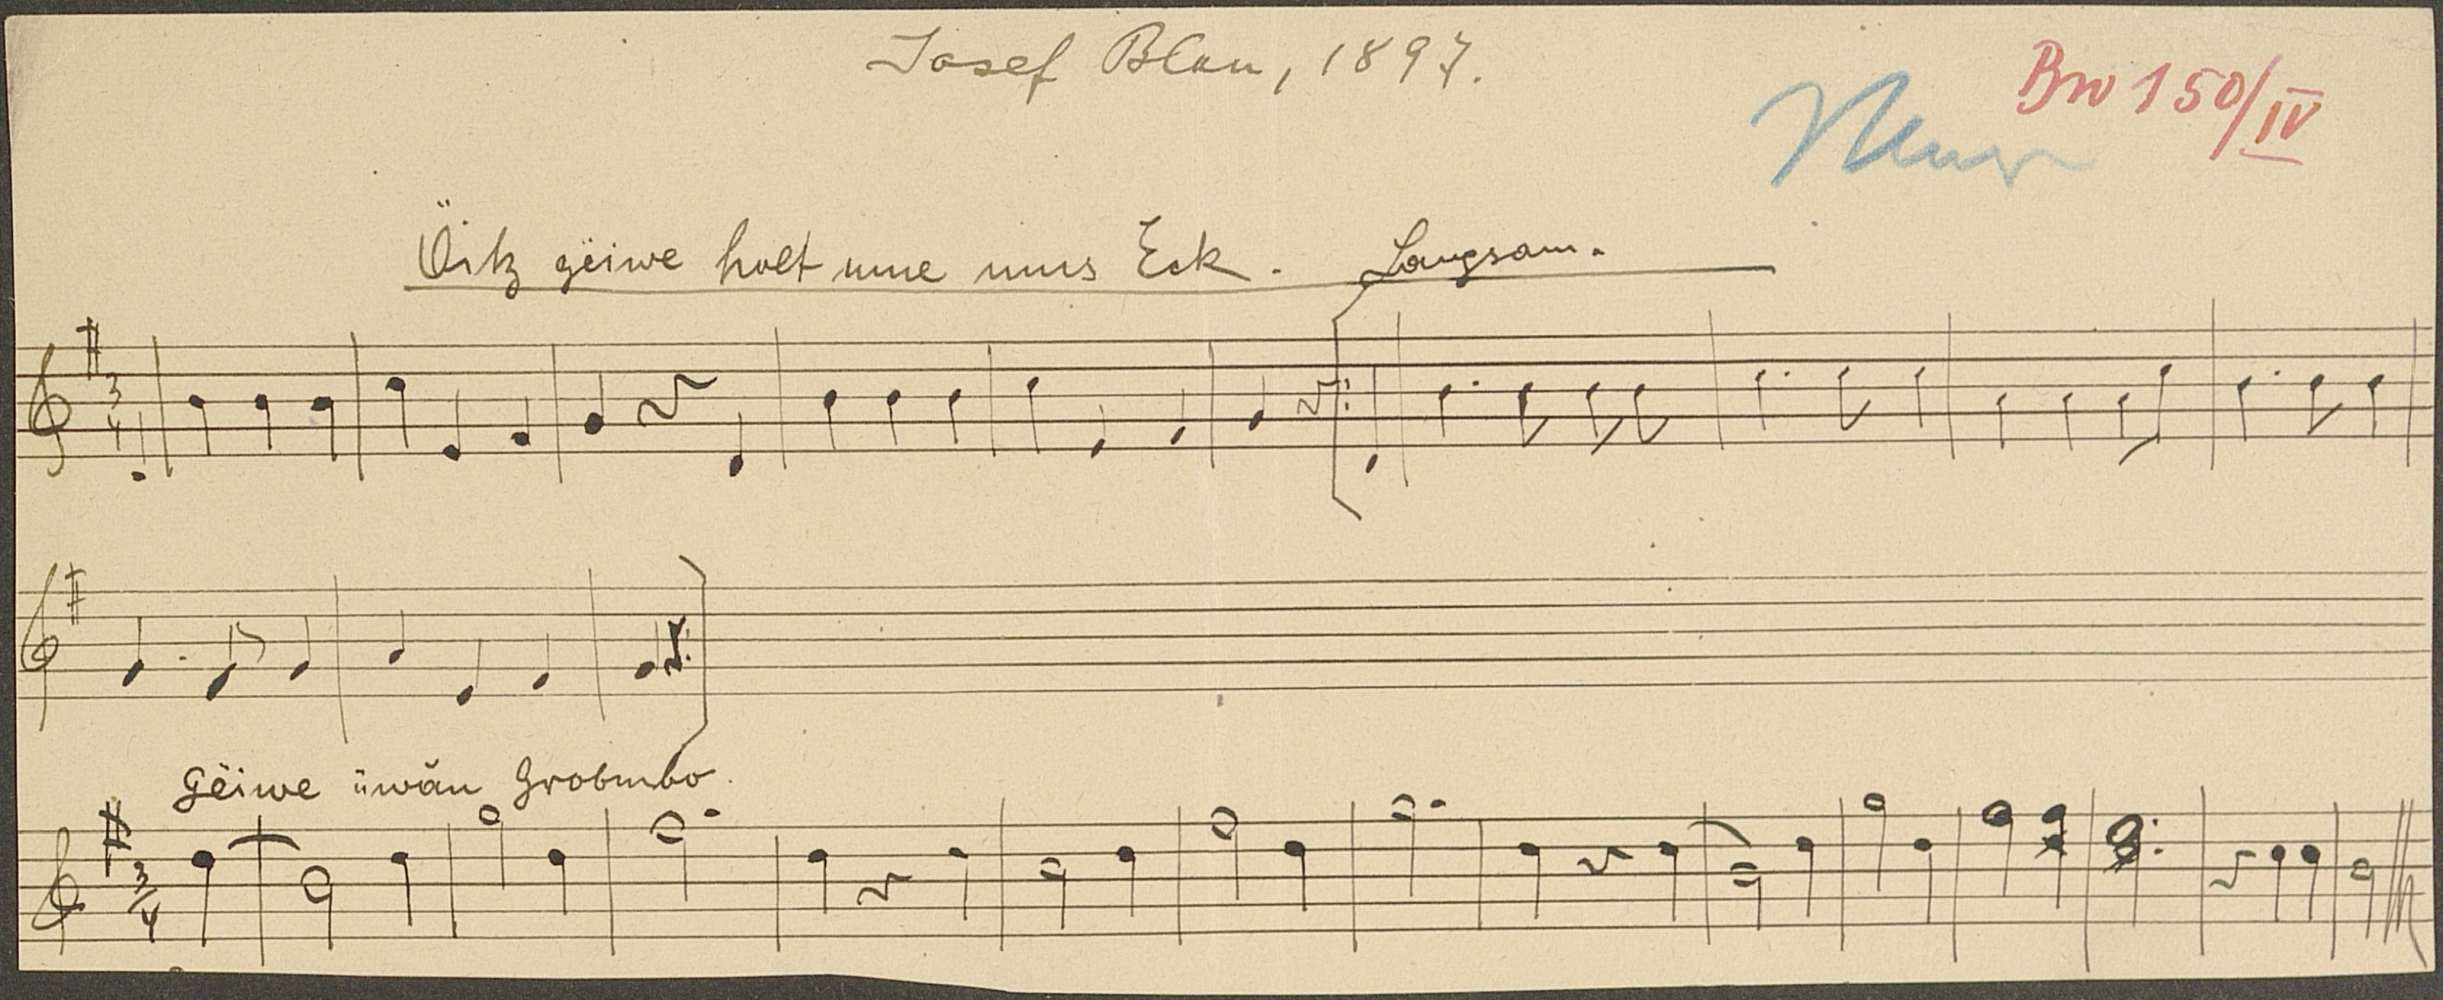 Josef Blau, 1897.
Bw 150/IV
Öitz gëiwe holt ume ums Eck. Langsam.
3/4
Gëiwe üwăn Grobmbo.
3/4